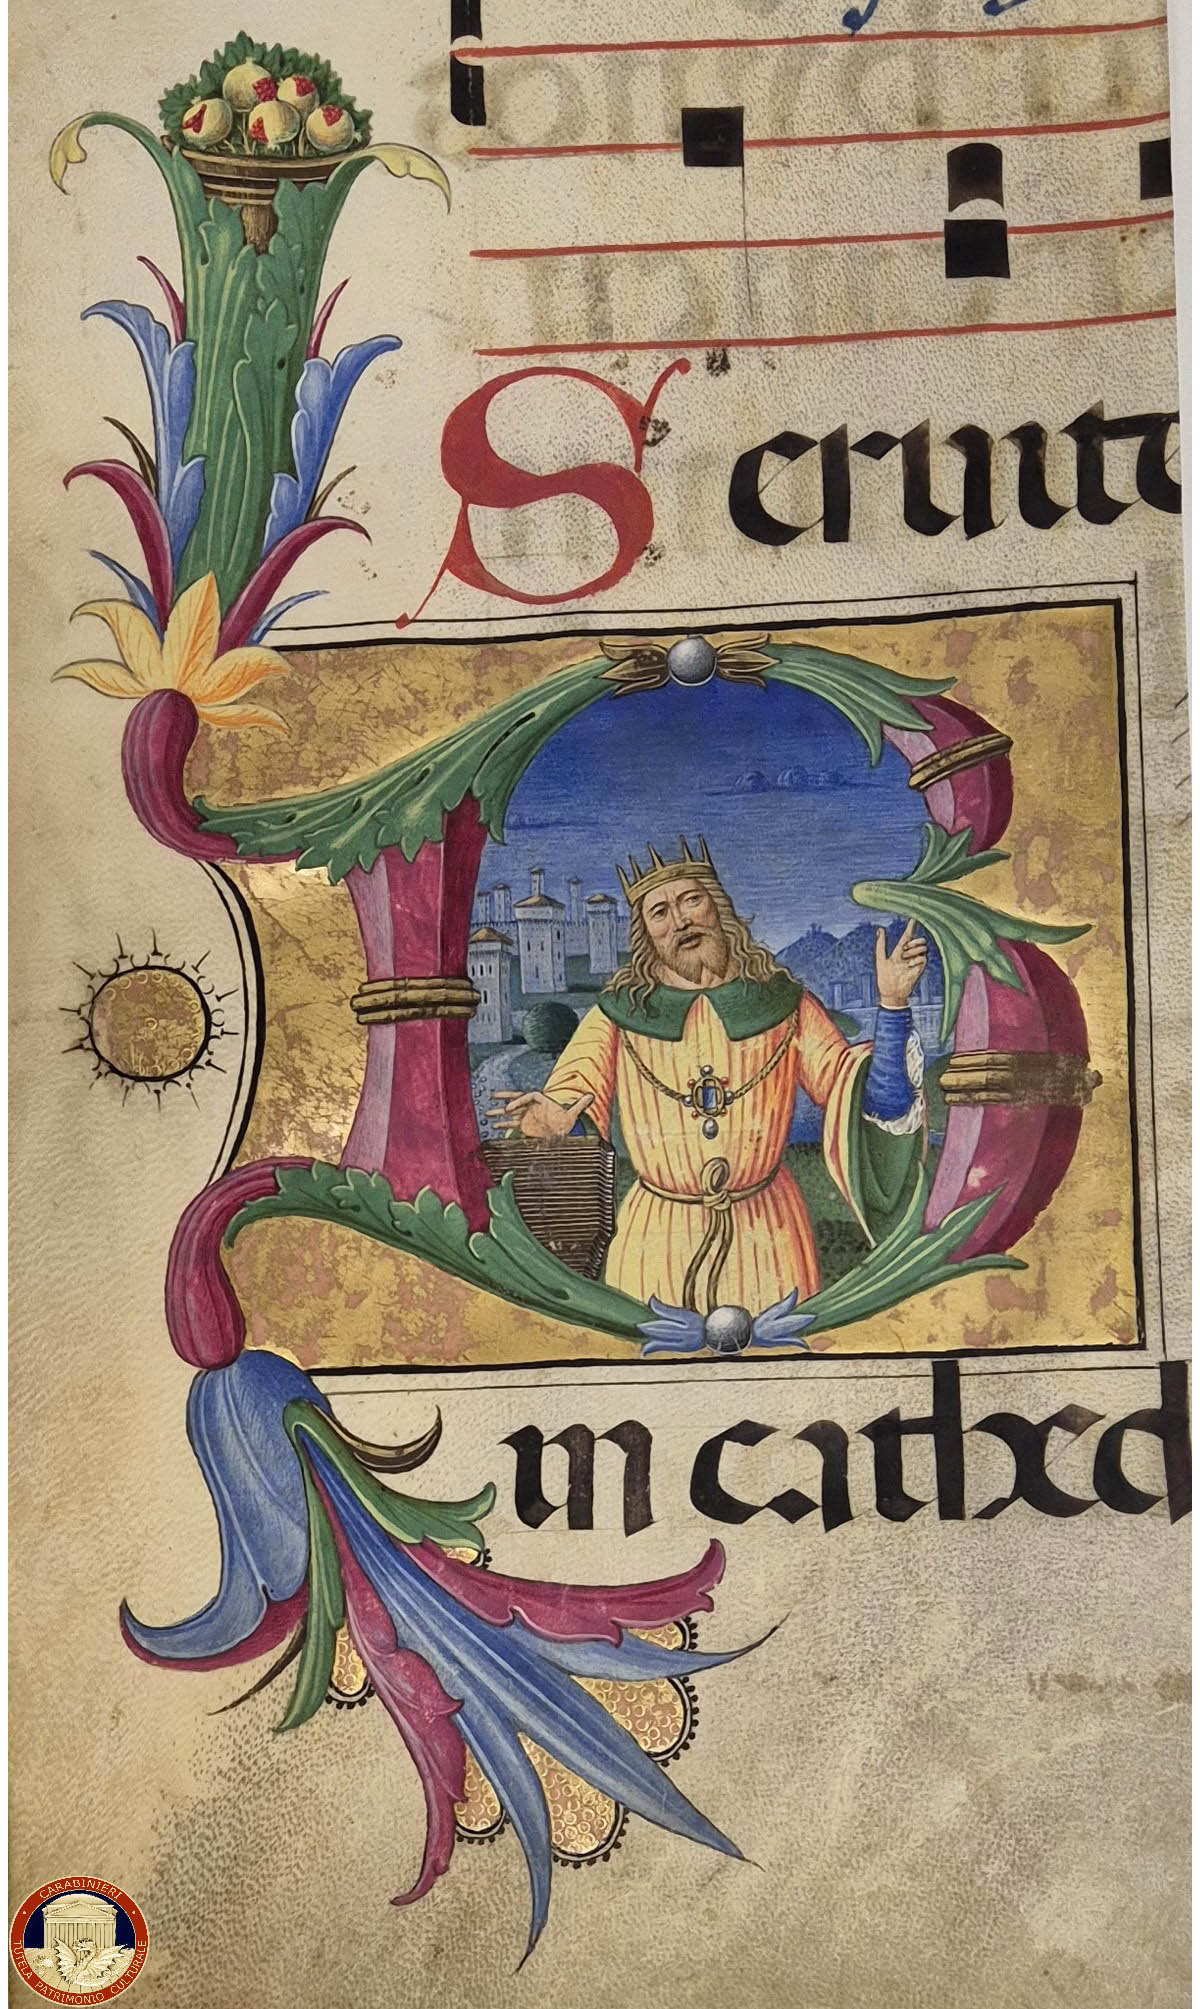 Seruite
B
in cathed
CARABINIERI
TUTELA PATRIMONIO CULTURALE